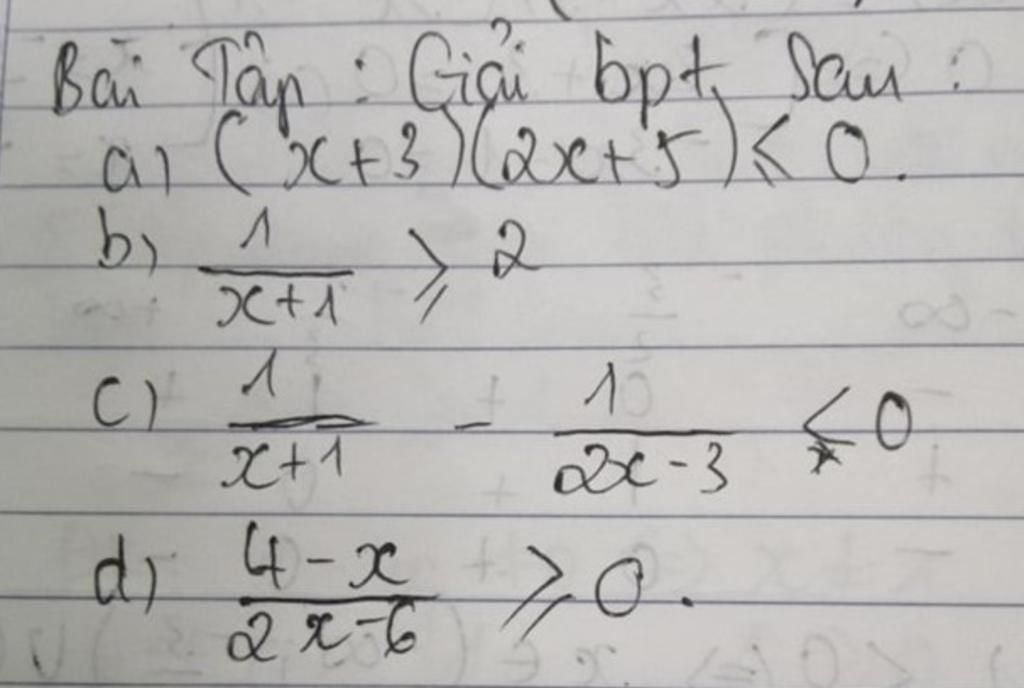 Bài Tập : Giải bpt sau :
a) (x+3)(2x+5) ≤ 0.
b) 1/(x+1) ≥ 2
c) 1/(x+1) - 1/(2x-3) ≤ 0
d) (4-x)/(2x-6) ≥ 0.